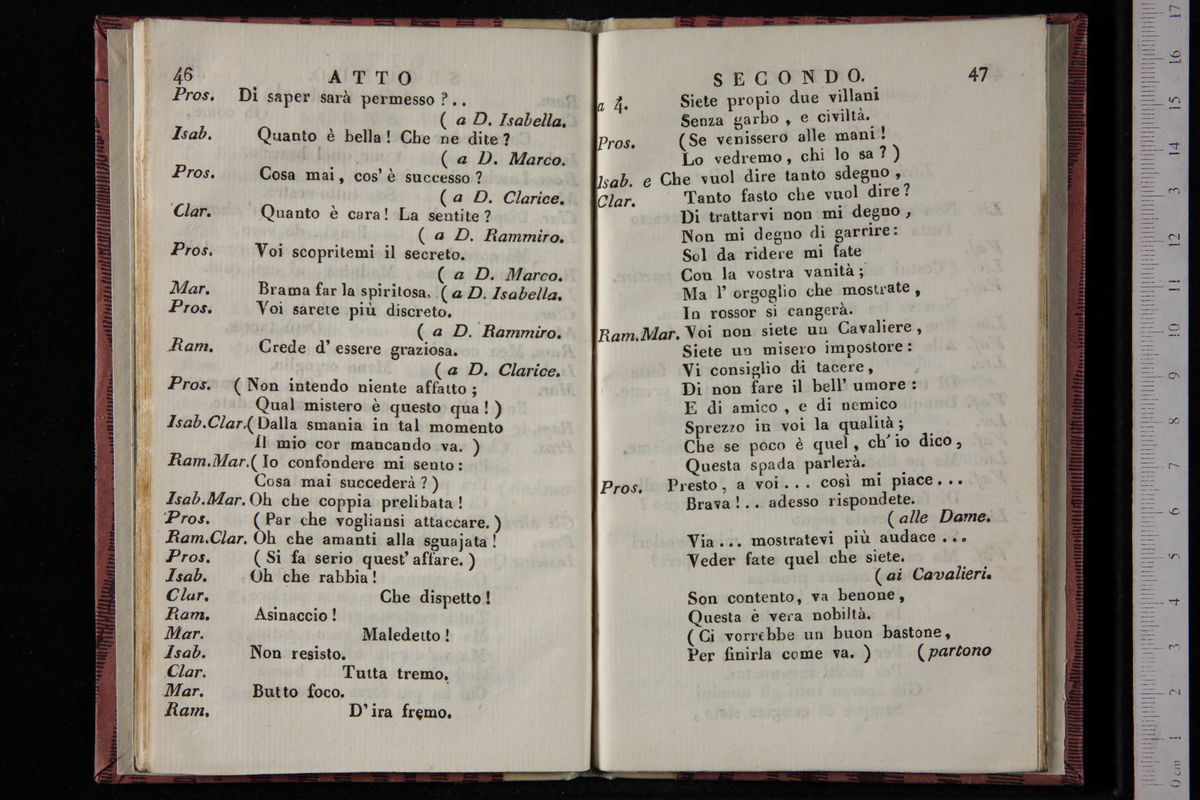 46 ATTO
Pros. Di saper sarà permesso ?..
( a D. Isabella.
Isab. Quanto è bella ! Che ne dite ?
( a D. Marco.
Pros. Cosa mai , cos' è successo ?
( a D. Clarice.
Clar. Quanto è cara ! La sentite ?
( a D. Rammiro.
Pros. Voi scopritemi il secreto.
( a D. Marco.
Mar. Brama far la spiritosa. ( a D. Isabella.
Pros. Voi sarete più discreto.
( a D. Rammiro.
Ram. Crede d' essere graziosa.
( a D. Clarice.
Pros. ( Non intendo niente affatto ;
Qual mistero è questo qua ! )
Isab.Clar.( Dalla smania in tal momento
Il mio cor mancando va. )
Ram.Mar.( Io confondere mi sento :
Cosa mai succederà ? )
Isab.Mar. Oh che coppia prelibata !
Pros. ( Par che vogliansi attaccare. )
Ram.Clar. Oh che amanti alla sguajata !
Pros. ( Si fa serio quest' affare. )
Isab. Oh che rabbia !
Clar. Che dispetto !
Ram. Asinaccio !
Mar. Maledetto !
Isab. Non resisto.
Clar. Tutta tremo.
Mar. Butto foco.
Ram. D' ira fremo.
SECONDO. 47
a 4. Siete propio due villani
Senza garbo , e civiltà.
Pros. ( Se venissero alle mani !
Lo vedremo , chi lo sa ? )
Isab. e Che vuol dire tanto sdegno ,
Clar. Tanto fasto che vuol dire ?
Di trattarvi non mi degno ,
Non mi degno di garrire :
Sol da ridere mi fate
Con la vostra vanità ;
Ma l' orgoglio che mostrate ,
In rossor si cangerà.
Ram.Mar. Voi non siete un Cavaliere ,
Siete un misero impostore :
Vi consiglio di tacere ,
Di non fare il bell' umore :
E di amico , e di nemico
Sprezzo in voi la qualità ;
Che se poco è quel , ch' io dico ,
Questa spada parlerà.
Pros. Presto , a voi . . . così mi piace . . .
Brava ! . . adesso rispondete.
( alle Dame.
Via . . . mostratevi più audace . . .
Veder fate quel che siete.
( ai Cavalieri.
Son contento , va benone ,
Questa è vera nobiltà.
( Ci vorrebbe un buon bastone ,
Per finirla come va. ) ( partono
0 cm 1 2 3 4 5 6 7 8 9 10 11 12 13 14 15 16 17